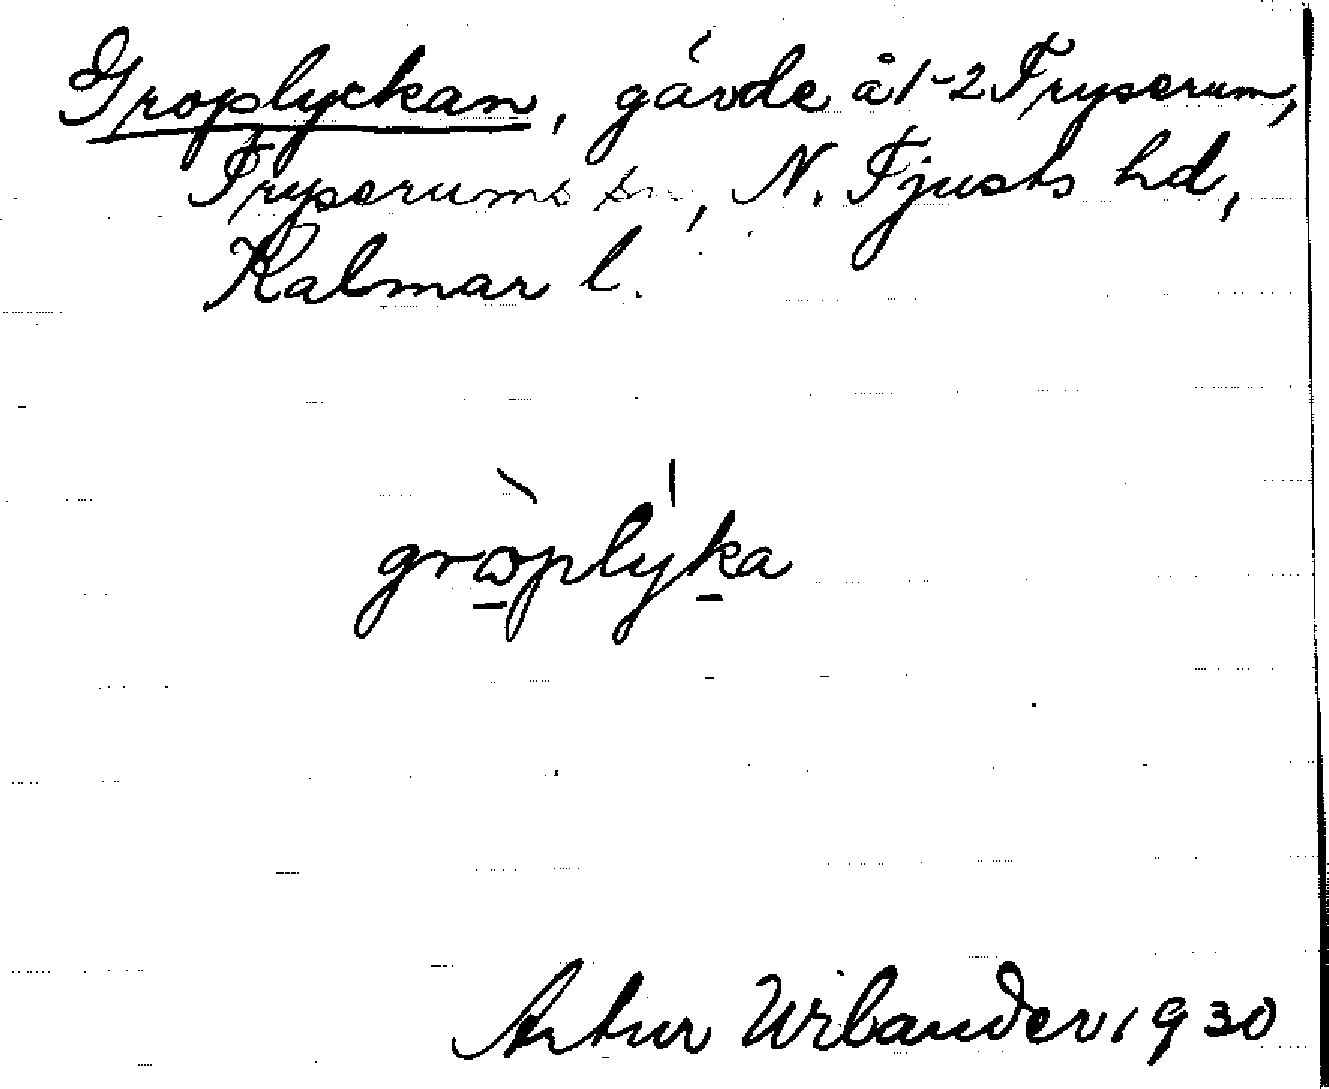 Groplyckan, gärde å 1-2 Fryserum,
Fryserums sn, N. Tjusts hd,
Kalmar l.
gròplyka
Artur Wilander, 1930